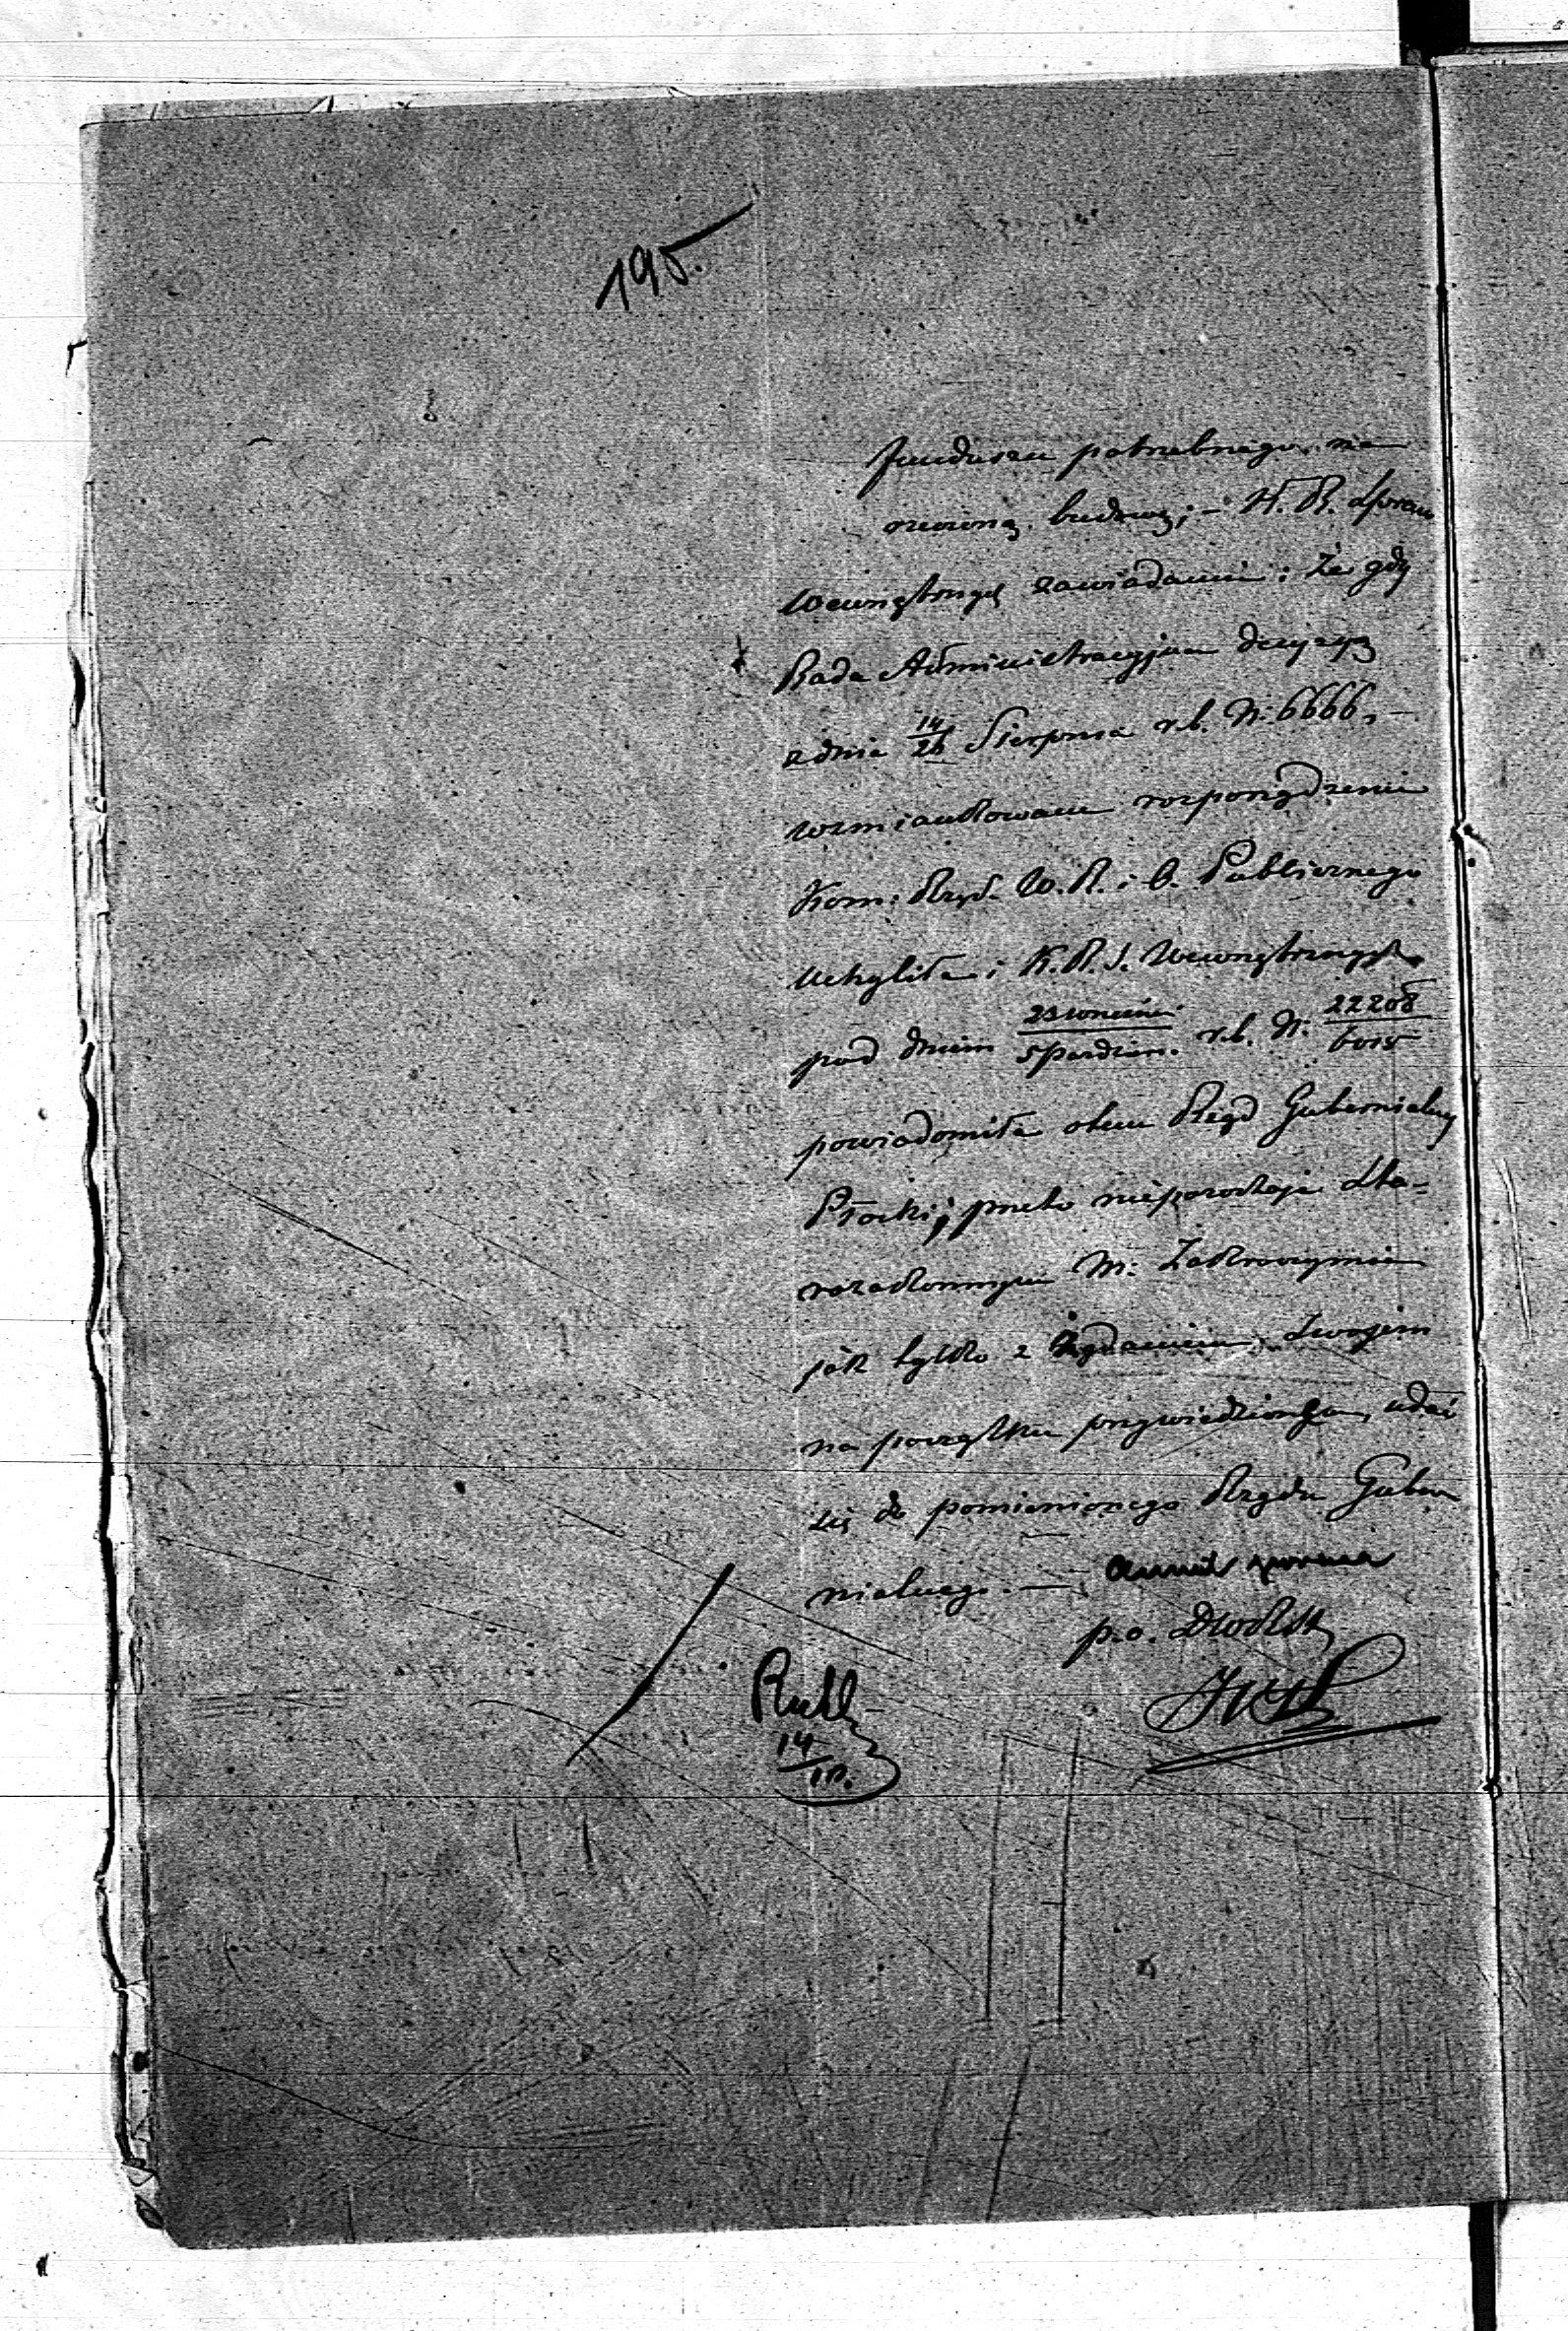 195.
funduszu potrzebnego na
rzeczoną budowę; – K. R. Spraw
Wewnętrznych zawiadamia: że gdy
Rada Administracyjna decyzyą
z dnia 14/26 Sierpnia r.b. N: 6666, –
wzmiankowane rozporządzenie
Kom: Rząd. W. R. i O. Publicznego
uchyliła i K. R. S. Wewnętrznych
pod dniem 23 września/5 Paździer. r.b. N: 22208/6015
powiadomiła o tem Rząd Gubernialny
Płocki; przeto niepozostaje Sta-
rozakonnym M: Zakroczymia
jak tylko z żądaniem swojem
na początku przywiedzionem, udać
się do pomienionego Rządu Guber
nialnego. –
p.o. Dyrek
14/10.